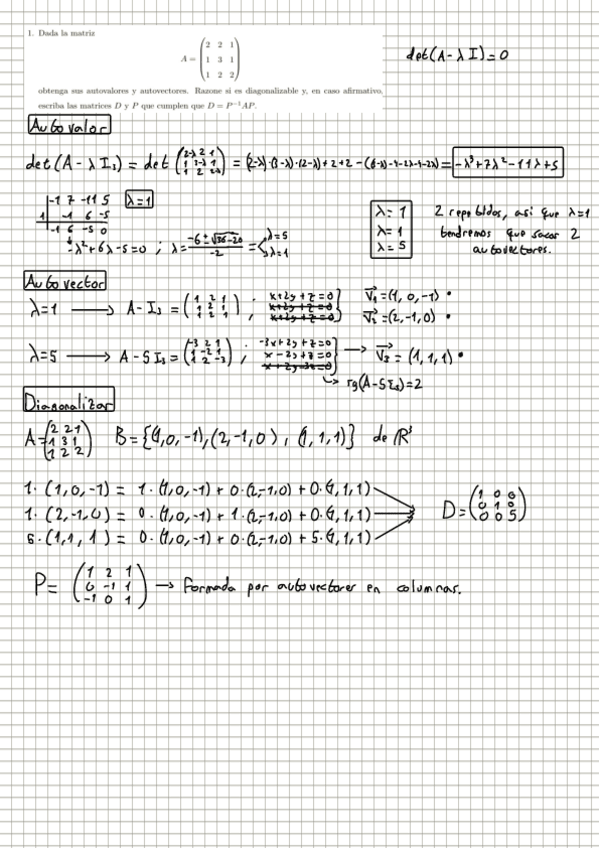 1. Dada la matriz
A = \begin{pmatrix} 2 & 2 & 1 \\ 1 & 3 & 1 \\ 1 & 2 & 2 \end{pmatrix}
det(A-λI)=0
obtenga sus autovalores y autovectores. Razone si es diagonalizable y, en caso afirmativo,
escriba las matrices D y P que cumplen que D = P⁻¹AP.
Autovalor
det(A-λI₃) = det \begin{pmatrix} 2-λ & 2 & 1 \\ 1 & 3-λ & 1 \\ 1 & 2 & 2-λ \end{pmatrix} = (2-λ)·(3-λ)·(2-λ)+2+2-(6-λ)-4-2λ-4-2λ) = -λ³+7λ²-11λ+5
-1 7 -11 5 λ=1
1 -1 6 -5
-1 6 -5 0
-λ²+6λ-5=0 ; λ = \frac{-6±√36-20}{-2} = λ=5 λ=1
λ=1
λ=1
λ=5
2 repetidos, asi que λ=1
tendremos que sacar 2
autovectores.
Autovector
λ=1 ⟶ A-I₃ = \begin{pmatrix} 1 & 2 & 1 \\ 1 & 2 & 1 \\ 1 & 2 & 1 \end{pmatrix} ; x+2y+z=0 x+2y+z=0 x+2y+z=0 } V₁=(1,0,-1) • V₂=(2,-1,0) •
λ=5 ⟶ A-5I₃ = \begin{pmatrix} -3 & 2 & 1 \\ 1 & -2 & 1 \\ 1 & 2 & -3 \end{pmatrix} ; -3x+2y+z=0 x-2y+z=0 x+2y-3z=0 } → V₃=(1,1,1) •
↳ rg(A-5I₃)=2
Diagonalizar
A = \begin{pmatrix} 2 & 2 & 1 \\ 1 & 3 & 1 \\ 1 & 2 & 2 \end{pmatrix} B={(1,0,-1),(2,-1,0),(1,1,1)} de ℝ³
1·(1,0,-1) = 1·(1,0,-1)+0·(2,-1,0)+0·(1,1,1)
1·(2,-1,0) = 0·(1,0,-1)+1·(2,-1,0)+0·(1,1,1)
5·(1,1,1) = 0·(1,0,-1)+0·(2,-1,0)+5·(1,1,1)
D = \begin{pmatrix} 1 & 0 & 0 \\ 0 & 1 & 0 \\ 0 & 0 & 5 \end{pmatrix}
P = \begin{pmatrix} 1 & 2 & 1 \\ 0 & -1 & 1 \\ -1 & 0 & 1 \end{pmatrix} → formada por autovectores en columnas.